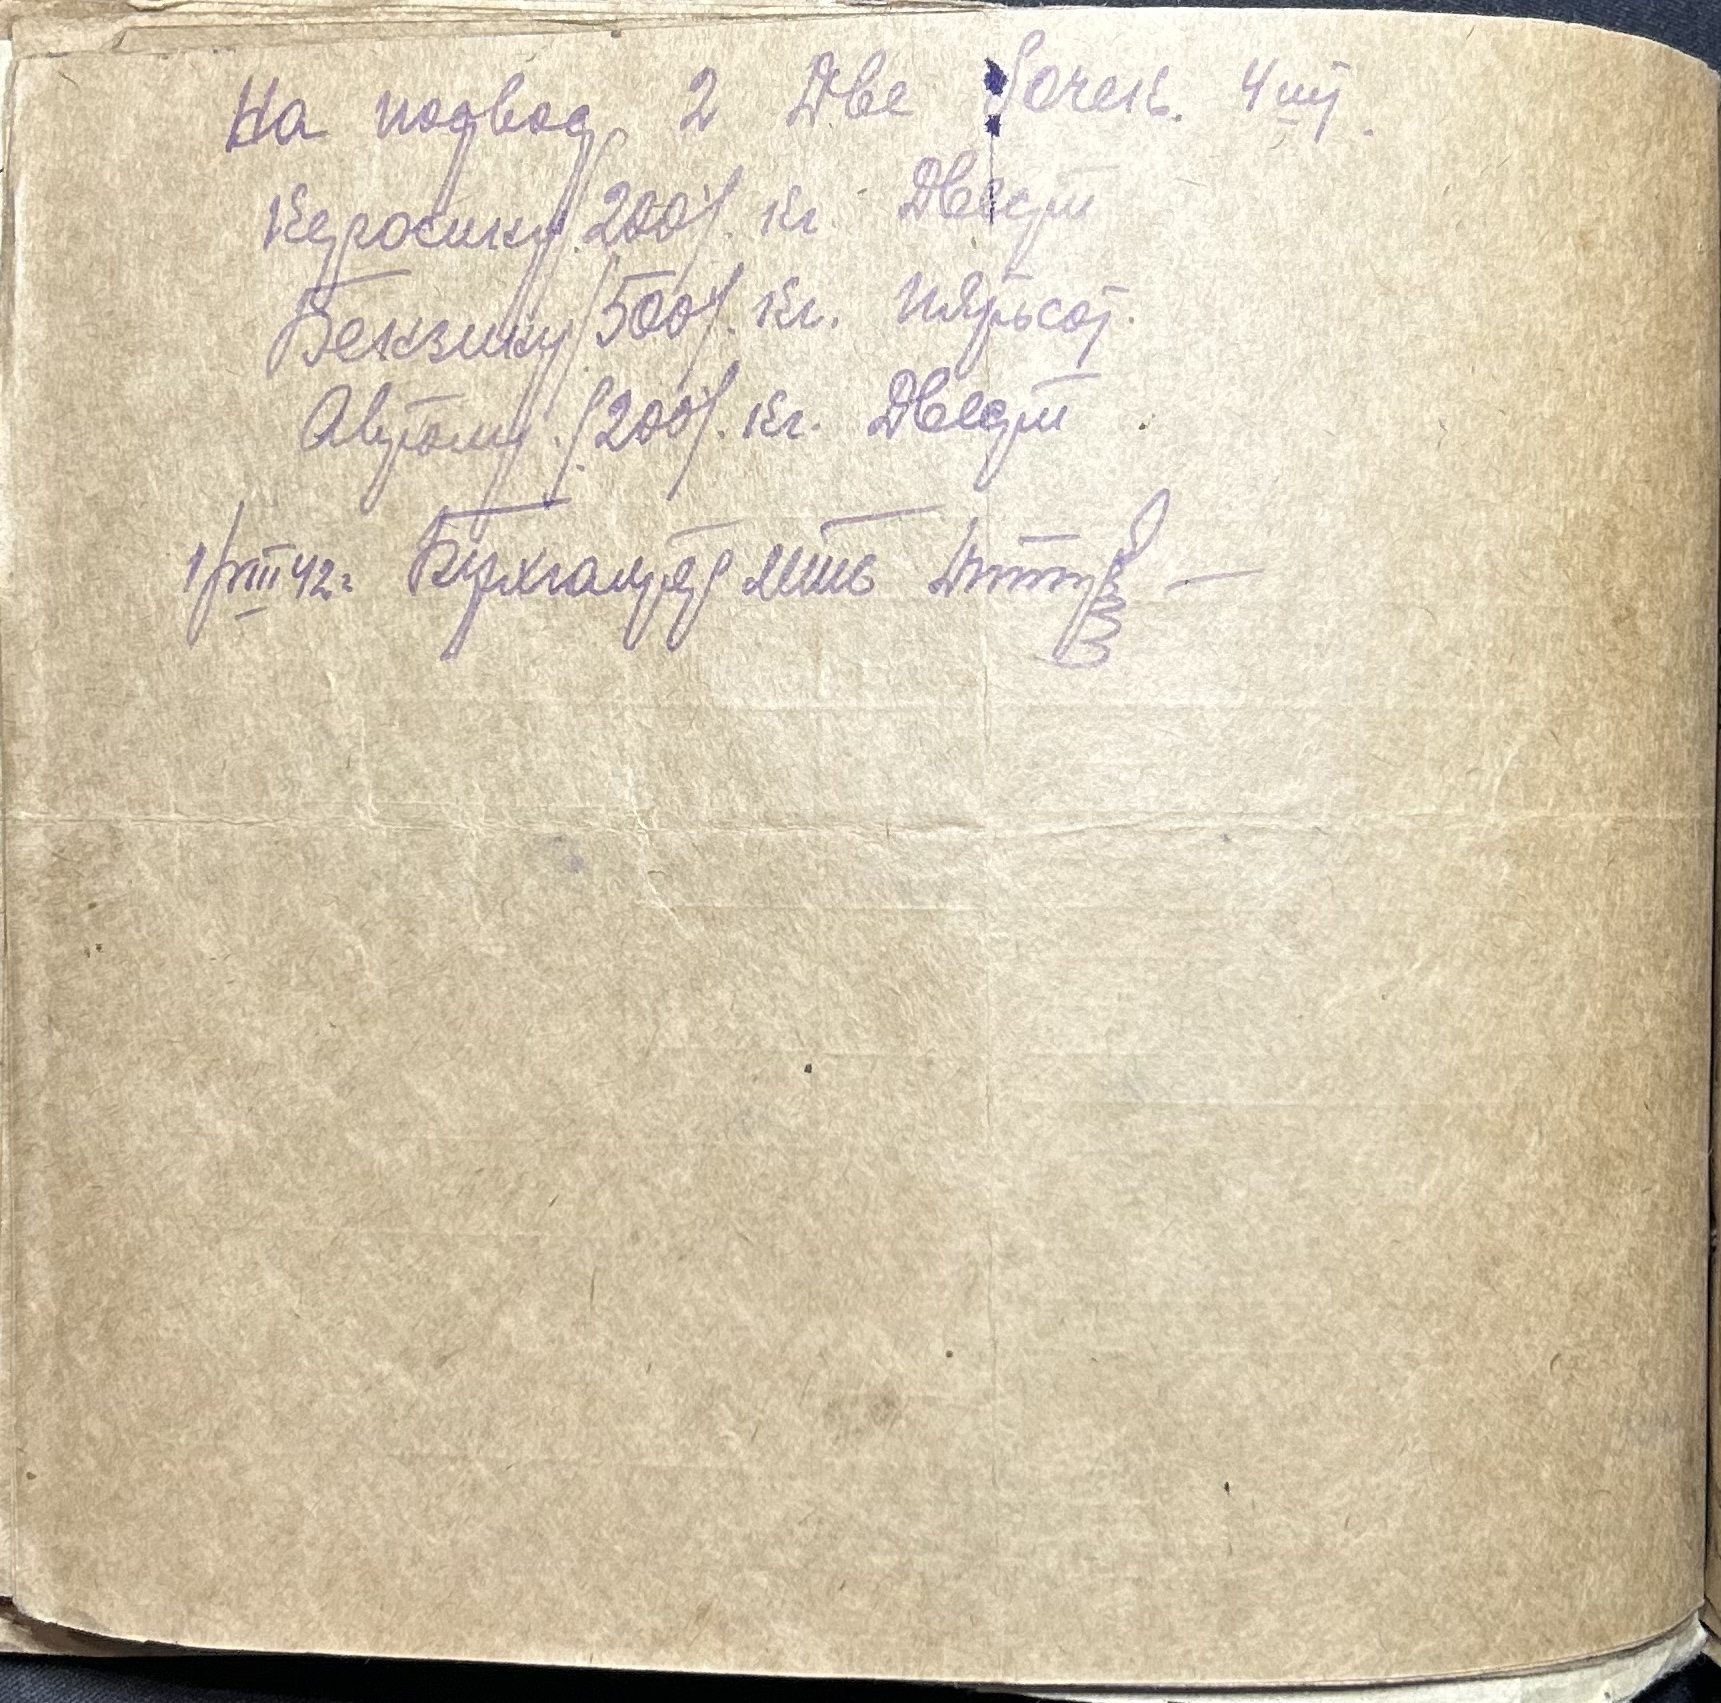 На подвод 2 Две бочек. 4 шт.
Керосину /200/. кг Двести
Бензину /500/. кг. Пятьсот.
Автолу. /200/. кг. Двести
1/VIII 42г. Бухгалтер